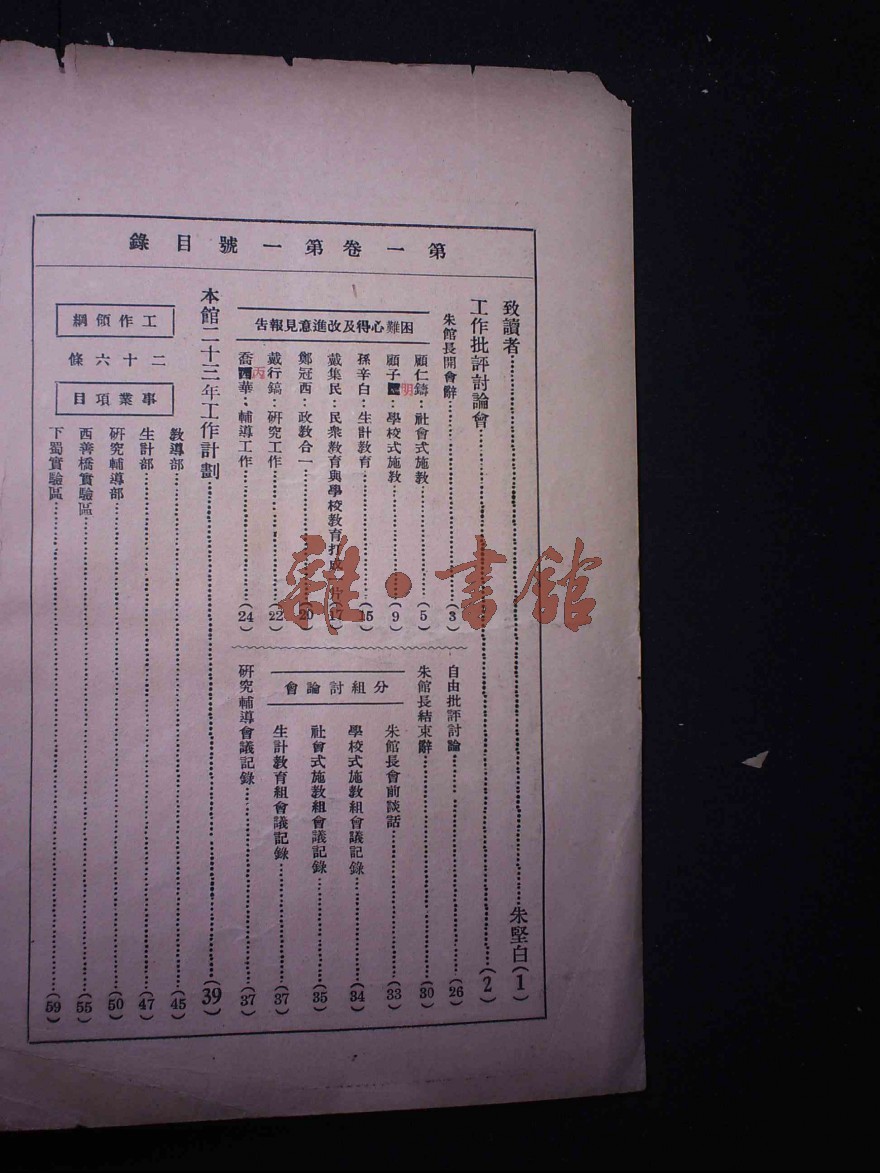 第一卷第一號目錄
致讀者 朱堅白(1)
工作批評討論會 (2)
朱館長開會辭 (3)
困難心得及改進意見報告
顧仁鑄：社會式施教 (5)
顧子明：學校式施教 (9)
孫辛白：生計教育 (15)
戴集民：民衆教育與學校教育打成一片 (17)
鄭冠西：政教合一 (20)
戴行鎬：研究工作 (22)
喬丙華：輔導工作 (24)
自由批評討論 (26)
朱館長結束辭 (30)
分組討論會
朱館長會前談話 (33)
學校式施教組會議記錄 (34)
社會式施教組會議記錄 (35)
生計教育組會議記錄 (37)
研究輔導會議記錄 (37)
本館二十三年工作計劃 (39)
工作領綱
二十六條
事業項目
教導部 (45)
生計部 (47)
研究輔導部 (50)
西善橋實驗區 (55)
下蜀實驗區 (59)
雜·書館